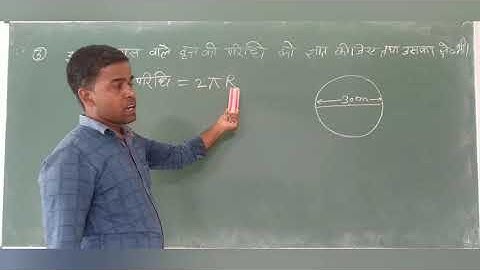 ② वाले वृत्त की परिधि को ज्ञात कीजिए तथा उसका
परिधि = 2πR
30cm